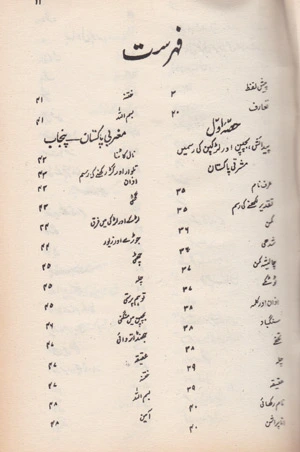 فہرست
پیش لفظ ۳
تعارف ۲۰
حصّہ اوّل
پیدائش، بچپن اور لڑکپن کی رسمیں
مشرقی پاکستان
عرف نام ۳۵
تقدیر لکھنے کی رسم ۳۵
کمن ۳۶
شدھی ۳۶
چالیشہ کمن ۳۷
ٹوٹکے ۳۷
اذان اور کلمہ ۳۸
سنگباد ۳۸
تحفے ۳۸
چلہ ۳۹
عقیقہ ۳۹
نام رکھائی ۴۰
انا پراشن ۴۰
ختنہ ۴۱
بسم اللہ ۴۱
مغربی پاکستان ــــ پنجاب
نال کاٹنا ۴۲
تلوار اور گرز رکھنے کی رسم ۴۳
اذان ۴۳
گھٹی ۴۳
لڑکے اور لڑکی میں فرق ۴۴
جوڑے اور زیور ۴۴
چھٹی ۴۵
چلہ ۴۵
توہم پرستی ۴۵
بچپن میں منگنی ۴۶
جھنڈ اتروائی ۴۶
عقیقہ ۴۷
ختنہ ۴۷
بسم اللہ ۴۸
آمین ۴۸